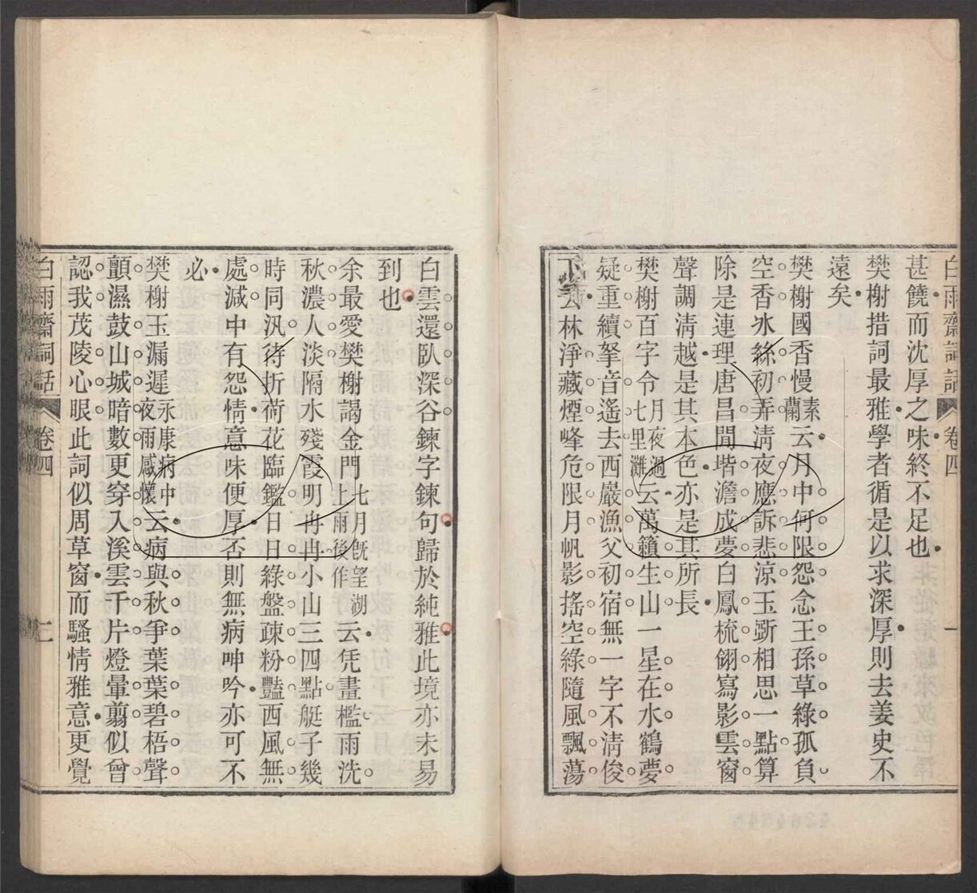 白雨齋詞話 卷四 一
甚饒而沈厚之味終不足也
樊榭措詞最雅學者循是以求深厚則去姜史不
遠矣
樊榭國香慢素蘭云月中何限怨念王孫草綠孤負
空香氷絲初弄清夜應訴悲涼玉斲相思一點算
除是連理唐昌閒堦澹成夢白鳳梳翎寫影雲窗
聲調清越是其本色亦是其所長
樊榭百字令月夜過七里灘云萬籟生山一星在水鶴夢
疑重續挐音遙去西巖漁父初宿無一字不清俊
下云林淨藏煙峰危限月帆影搖空綠隨風飄蕩
白雲還臥深谷鍊字鍊句歸於純雅此境亦未易
到也
余最愛樊榭謁金門七月既望湖上雨後作云凭畫檻雨洗
秋濃人淡隔水殘霞明冉冉小山三四點艇子幾
時同汎待折荷花臨鑑日日綠盤疎粉豔西風無
處減中有怨情意味便厚否則無病呻吟亦可不
必
樊榭玉漏遲永康病中夜雨感懷云病與秋爭葉葉碧梧聲
顫濕鼓山城暗數更穿入溪雲千片燈暈翦似曾
認我茂陵心眼此詞似周草窗而騷情雅意更覺
白雨齋詞話 卷四 二